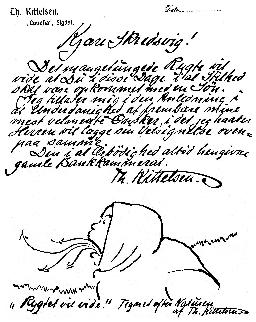 Th. Kittelsen.
Lauvlia, Sigdal.
Kjære Skredsvig!
Det mangetungede Rygte vil
vide at Du i disse Dage i al Stilhed
skal være opkommet med en Søn.
Jeg tillader mig i den Anledning i
al Underdanighed at frembære mine
mest velmente Ønsker, i det jeg haaber
Herren vil lægge sin Velsignelse oven-
paa samme.
Din i al Ærbødighed altid hengivne
gamle Dankkammerat.
Th. Kittelsen.
"Rygtet vil vide." Tegnet efter Naturen
af Th. Kittelsen